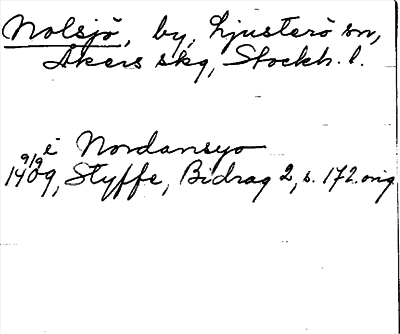 Nolsjö, by, Ljusterö sn,
Åkers skg, Stockh. l.
i Nordansyo
9/9 1409, Styffe, Bidrag 2, s. 172. orig